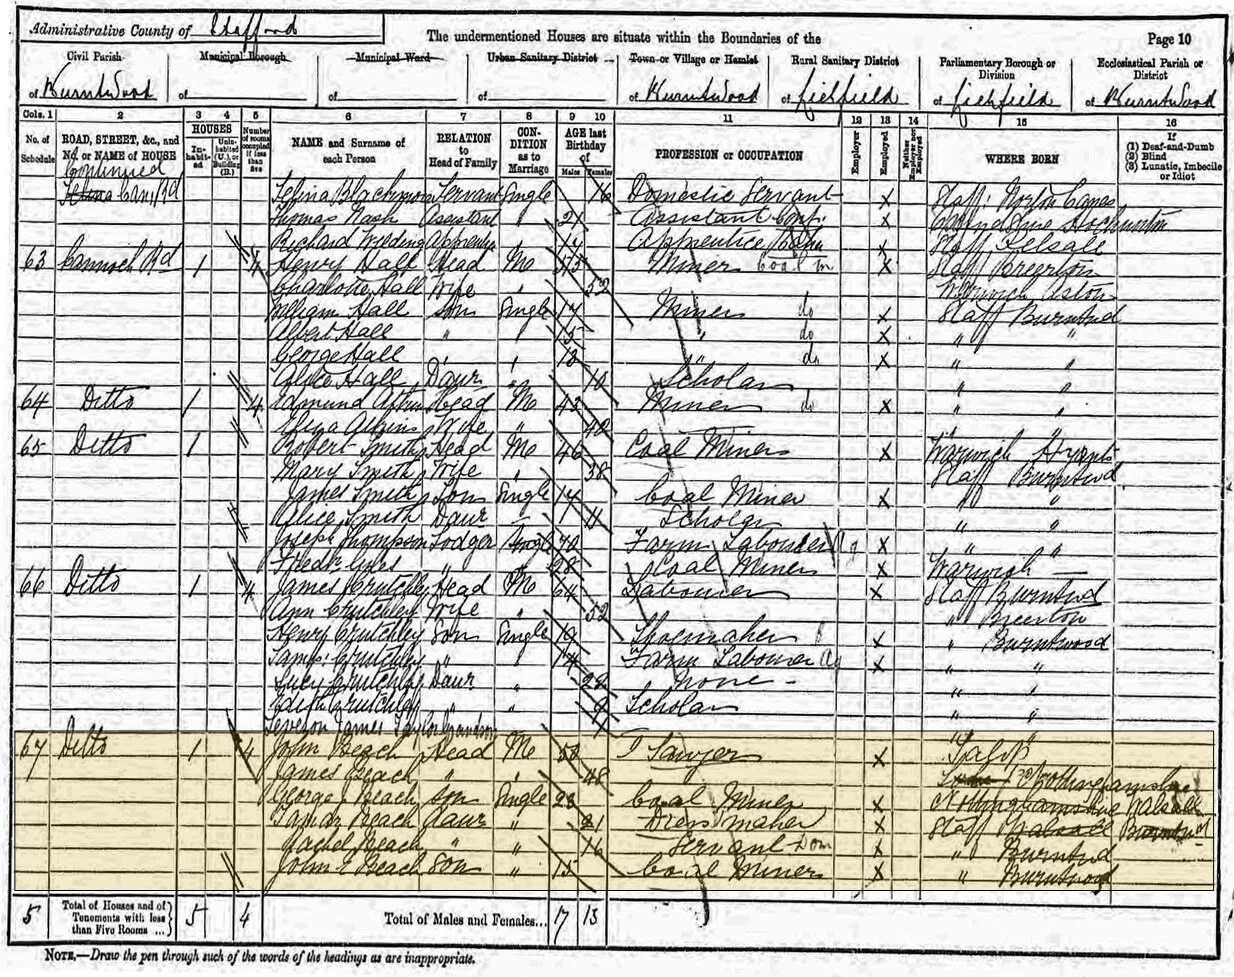 Administrative County of Stafford
The undermentioned Houses are situate within the Boundaries of the
Page 10
Civil Parish Municipal Borough Municipal Ward Urban Sanitary District Town or Village or Hamlet Rural Sanitary District Parliamentary Borough or Division Ecclesiastical Parish or District
of Burntwood of of of of Burntwood of Lichfield of Lichfield of Burntwood
Cols. 1 2 3 4 5 6 7 8 9 10 11 12 13 14 15 16
No. of Schedule ROAD, STREET, &c., and No. or NAME of HOUSE HOUSES In-habit-ed Unin-habited (U.), or Building (B.) Number of rooms occupied if less than five NAME and Surname of each Person RELATION to Head of Family CON-DITION as to Marriage AGE last Birthday of Males Females PROFESSION or OCCUPATION Employer Employed Neither Employer nor Employed WHERE BORN If (1) Deaf-and-Dumb (2) Blind (3) Lunatic, Imbecile or Idiot
continued
Rd Selina Servant Single 16 Domestic Servant x Staff Norton Canes
Thomas Nash Assistant " 21 Assistant x
Richard Apprentice " 14 Apprentice x Staff
63 Cannock Rd 1 4 Henry Hall Head M 55 Miner Coal x Staff
Charlotte Hall Wife " 52 Warwick Aston
William Hall Son Single 17 Miner do x Staff Burntwd
Albert Hall " " 15 " do x " "
George Hall " " 13 " do x " "
Alice Hall Daur " 10 Scholar " "
64 Ditto 1 4 Edmund Head M 43 Miner do x " "
Wife " 40
65 Ditto 1 Robert Smith Head M 46 Coal Miner x Warwick
Mary Smith Wife " 38 Staff Burntwd
James Smith Son Single 14 Coal Miner x " "
Alice Smith Daur 11 Scholar " "
Joseph Thompson Lodger 70 Farm Labourer Ag x " "
Fredk " 28 Coal Miner x Warwick
66 Ditto 1 4 James Crutchley Head M 64 Labourer x Staff Burntwd
Ann Crutchley Wife " 52 "
Henry Crutchley Son Single 19 Shoemaker x " Burntwood
James Crutchley " " 14 Farm Labourer Ag x " "
Lucy Crutchley Daur " 22 None " "
Edith Crutchley " " 9 Scholar " "
Leveson James Grandson " "
67 Ditto 1 4 John Beach Head M 52 Sawyer x Salop
James Beach " " 48 Nottinghamshire
George Beach Son Single 23 Coal Miner x Nottinghamshire
Tamar Beach Daur " 21 Dress maker x Staff Walsall Burntwd
Rachel Beach " " 16 Servant Dom x " Burntwd
John Beach Son 15 Coal Miner x " Burntwood
5 Total of Houses and of Tenements with less than Five Rooms ... 5 4 Total of Males and Females... 17 13
NOTE.—Draw the pen through such of the words of the headings as are inappropriate.